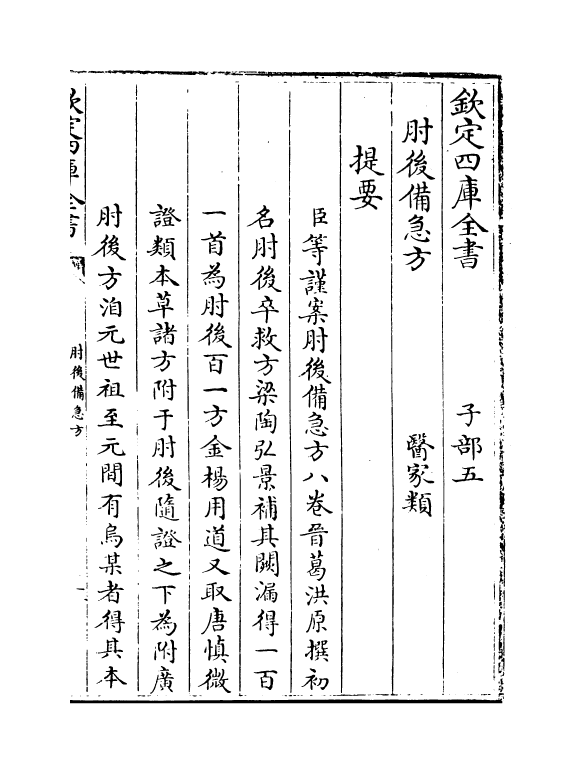 欽定四庫全書
子部五
肘後備急方
醫家類
提要
臣等謹案肘後備急方八卷晉葛洪原撰初
名肘後卒救方梁陶弘景補其闕漏得一百
一首為肘後百一方金楊用道又取唐慎微
證類本草諸方附于肘後隨證之下為附廣
肘後方洎元世祖至元間有烏某者得其本
欽定四庫全書
肘後備急方